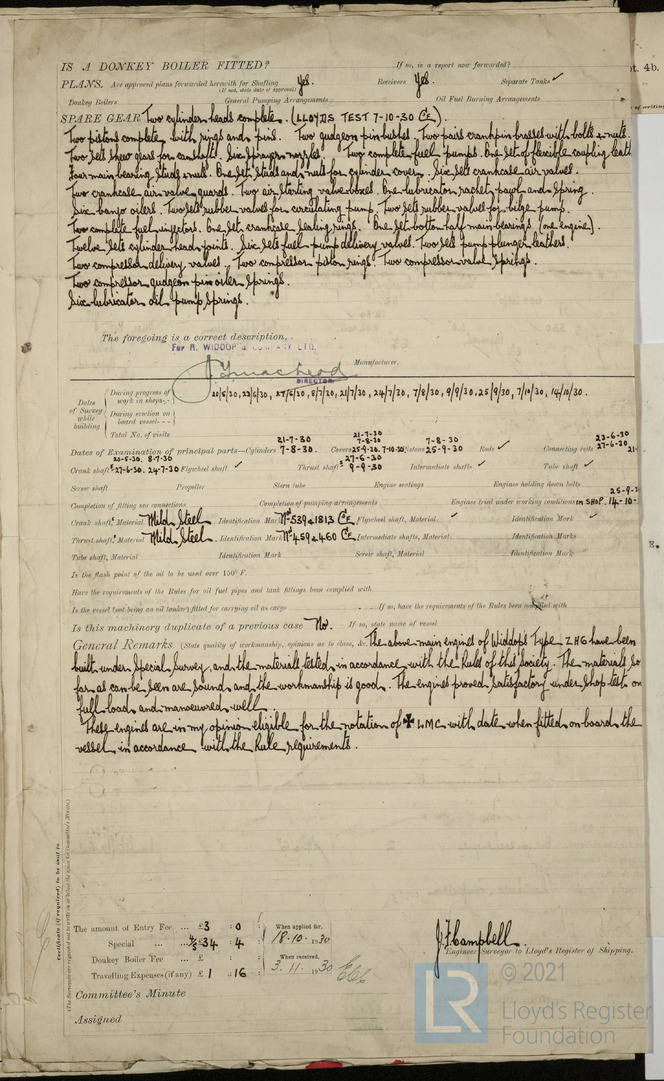 IS A DONKEY BOILER FITTED? If so, is a report now forwarded?
PLANS. Are approved plans forwarded herewith for Shafting Yes. Receivers Yes. Separate Tanks ✓
(If not, state date of approval)
Donkey Boilers General Pumping Arrangements Oil Fuel Burning Arrangements
SPARE GEAR Two cylinder heads complete. (LLOYDS TEST 7-10-30
Two pistons complete with rings and pins. Two gudgeon pin bushes. Two pairs crankpin brasses with bolts & nuts.
Two sets skew gears for camshaft. Six sprayer nozzles. Two complete fuel pumps. One set of flexible coupling leath
Four main bearing studs & nuts. One set studs and nuts for cylinder cover. Six sets crankcase air valves.
Two crankcase air valve guards. Two air starting valve boxes. One lubricator rachet, pawl and spring.
Six banjo oilers. Two sets rubber valves for circulating pump. Two sets rubber valves for bilge pump.
Two complete fuel injectors. One set crankcase sealing rings. One set bottom half main bearings (one engine).
Twelve sets cylinder head joints. Six sets fuel pump delivery valves. Two sets pump plunger leathers.
Two compressor delivery valves. Two compressor piston rings. Two compressor valve springs.
Two compressor gudgeon pin oiler springs.
Six lubricator oil pump springs.
The foregoing is a correct description,
For R. WIDDOP & COMPANY LTD.
Manufacturer.
DIRECTOR
Dates of Survey while building
During progress of work in shops - - 20/5/30, 23/6/30, 27/6/30, 8/7/30, 21/7/30, 24/7/30, 7/8/30, 9/9/30, 25/9/30, 7/10/30, 14/10/30.
During erection on board vessel - - -
Total No. of visits
Dates of Examination of principal parts—Cylinders 21-7-30 7-8-30. Covers 21-7-30 7-8-30 25-9-30. 7-10-30 Pistons 7-8-30 25-9-30 Rods ✓ Connecting rods 23-6-30 27-6-30 21-
Crank shafts 20-5-30. 8-7-30 27-6-30. 24-7-30 Flywheel shaft ✓ Thrust shafts 27-6-30 9-9-30 Intermediate shafts ✓ Tube shaft ✓
Screw shaft Propeller Stern tube Engine seatings Engines holding down bolts
Completion of fitting sea connections Completion of pumping arrangements Engines tried under working conditions IN SHOP. 25-9-3 14-10-
Crank shaft, Material Mild Steel Identification Mark Nos 539 & 1813 Flywheel shaft, Material ✓ Identification Mark ✓
Thrust shaft, Material Mild Steel Identification Mark Nos 459 & 460 Intermediate shafts, Material Identification Marks
Tube shaft, Material Identification Mark Screw shaft, Material Identification Mark
Is the flash point of the oil to be used over 150° F.
Have the requirements of the Rules for oil fuel pipes and tanks fittings been complied with
Is the vessel (not being an oil tanker) fitted for carrying oil as cargo If so, have the requirements of the Rules been complied with
Is this machinery duplicate of a previous case No. If so, state name of vessel
General Remarks (State quality of workmanship, opinions as to class, &c. The above main engines of Widdops Type ZHG have been
built under Special Survey, and the materials tested in accordance with the Rules of this Society. The materials so
far as can be seen are sound and the workmanship is good. The engines proved satisfactory under shop test on
full load and manoeuvred well.
These engines are in my opinion eligible for the notation of ✠ LMC with date when fitted on board the
vessel in accordance with the Rule requirements.
Certificate (if required) to be sent to
(The Surveyors are requested not to write on or below the space for Committee's Minute.)
The amount of Entry Fee ... £3 : 0 When applied for,
Special ... 4/5 £34 : 4 18-10-1930
Donkey Boiler Fee ... £ : When received,
Travelling Expenses (if any) £ 1 : 16 3.11.1930
J. F. Campbell.
Engineer Surveyor to Lloyd's Register of Shipping.
Committee's Minute
Assigned
LR
© 2021
Lloyd's Register
Foundation
t. 4b.
of writing
E.